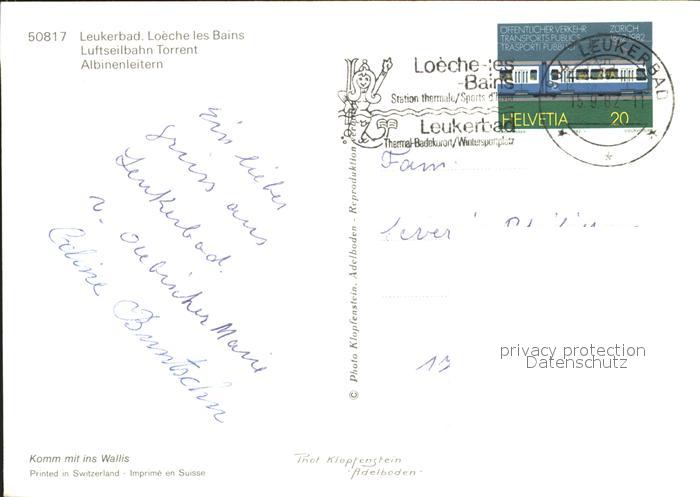 50817 Leukerbad. Loèche les Bains
Luftseilbahn Torrent
Albinenleitern
ÖFFENTLICHER VERKEHR ZÜRICH
TRANSPORTS PUBLICS 1982
TRASPORTI PUBBLICI
HELVETIA 20
LEUKERBAD
15.9.82-11
Loèche-les
-Bains
Station thermale/Sports d'hiver
Leukerbad
Thermal-Badekurort/Wintersportplatz
Ein lieber
Gruss aus
Leukerbad.
v. Marie
Céline
Fam.
13
© Photo Klopfenstein, Adelboden - Reproduktion verboten
privacy protection
Datenschutz
Komm mit ins Wallis
Printed in Switzerland - Imprimé en Suisse
Phot Klopfenstein
-Adelboden-